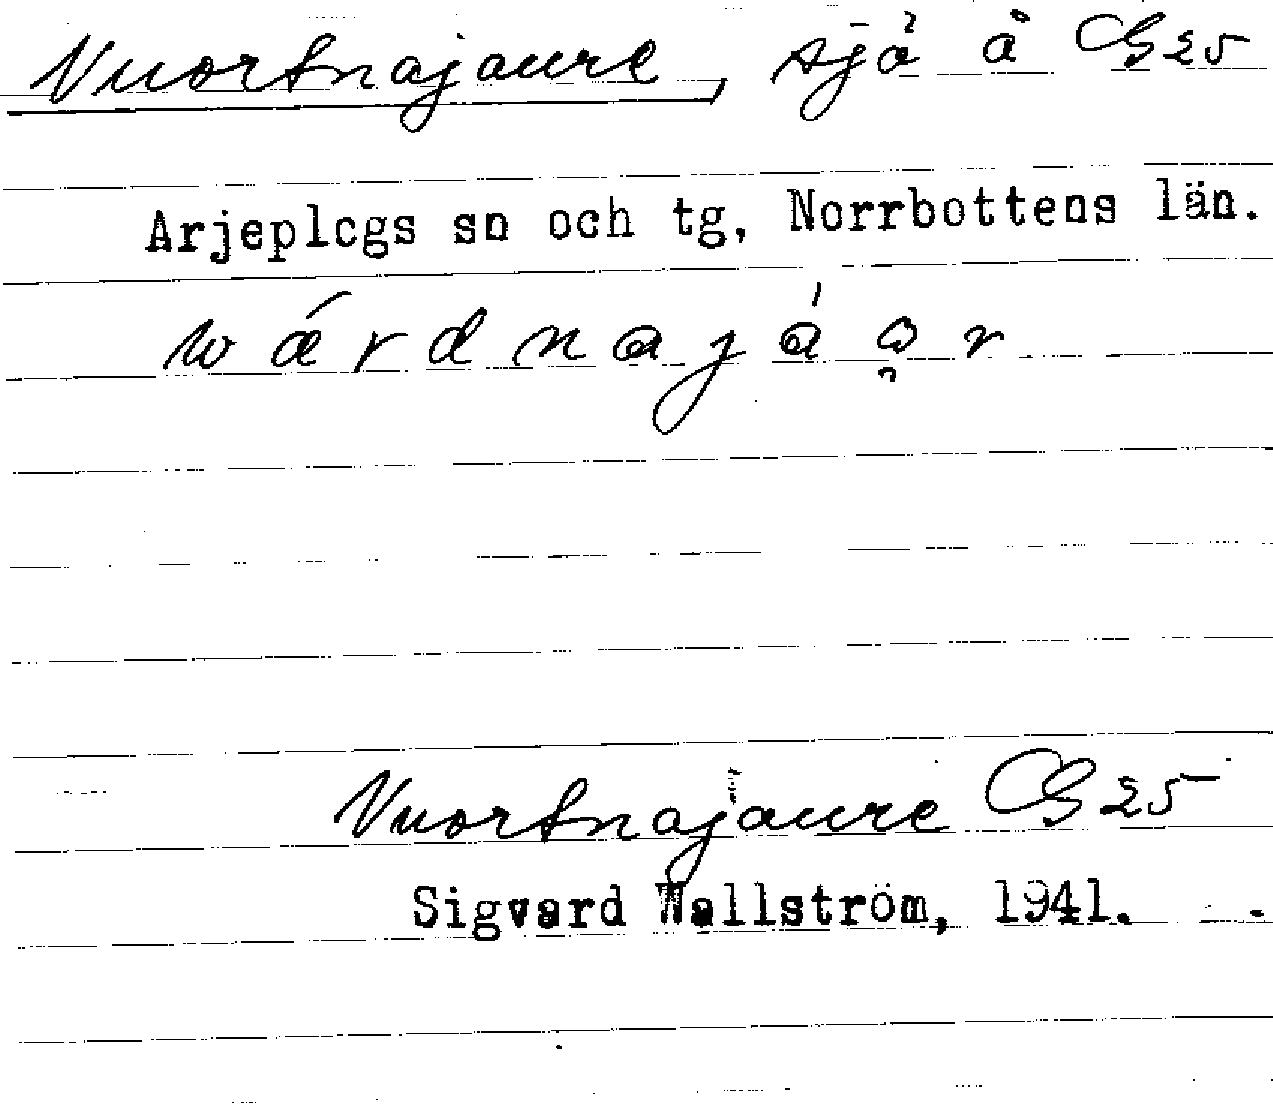 Vuortnajaure, sjö å GG 25
Arjeplogs sn och tg, Norrbottens län.
wǽrdnajáo̭r
Vuortnajaure GG 25
Sigvard Wallström, 1941.